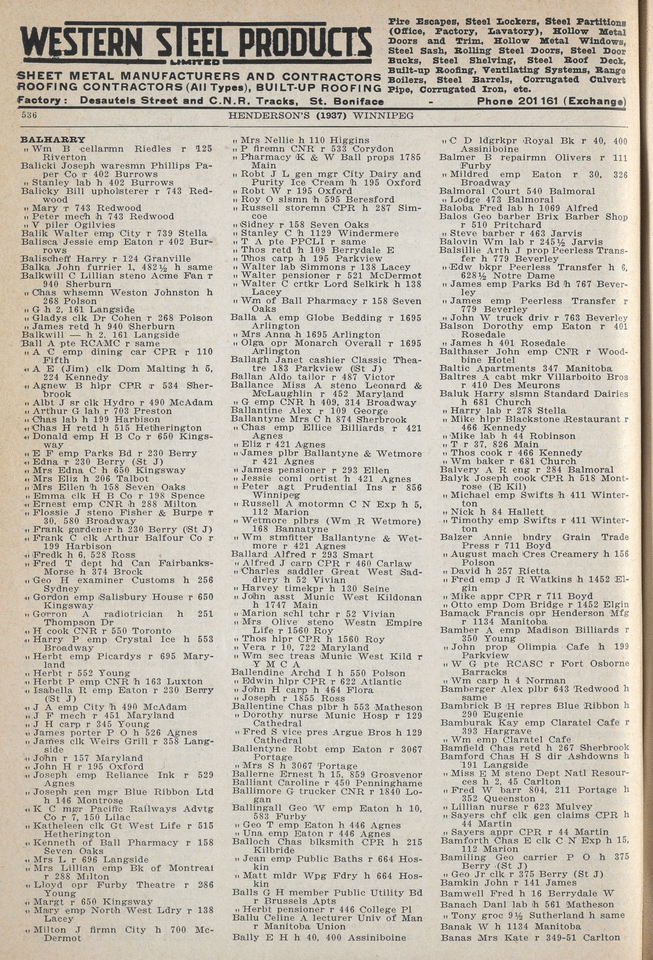 WESTERN STEEL PRODUCTS
LIMITED
SHEET METAL MANUFACTURERS AND CONTRACTORS
ROOFING CONTRACTORS (All Types), BUILT-UP ROOFING
Fire Escapes, Steel Lockers, Steel Partitions
(Office, Factory, Lavatory), Hollow Metal
Doors and Trim, Hollow Metal Windows,
Steel Sash, Rolling Steel Doors, Steel Door
Bucks, Steel Shelving, Steel Roof Deck,
Built-up Roofing, Ventilating Systems, Range
Boilers, Steel Barrels, Corrugated Culvert
Pipe, Corrugated Iron, etc.
Factory: Desautels Street and C.N.R. Tracks, St. Boniface - Phone 201 161 (Exchange)
536 HENDERSON'S (1937) WINNIPEG
BALHARRY
„ Wm B cellarmn Riedles r 125
Riverton
Balicki Joseph waresmn Phillips Pa-
per Co r 402 Burrows
„ Stanley lab h 402 Burrows
Balicky Bill upholsterer r 743 Red-
wood
„ Mary r 743 Redwood
„ Peter mech h 743 Redwood
„ V piler Ogilvies
Balik Walter emp City r 739 Stella
Balisca Jessie emp Eaton r 402 Bur-
rows
Balischeff Harry r 124 Granville
Balka John furrier 1, 482½ h same
Balkwill C Lillian steno Acme Fan r
940 Sherburn
„ Chas whsemn Weston Johnston h
268 Polson
„ G h 2, 161 Langside
„ Gladys clk Dr Cohen r 268 Polson
„ James retd h 940 Sherburn
Balkwill — h 2, 161 Langside
Ball A pte RCAMC r same
„ A C emp dining car CPR r 110
Fifth
„ A E (Jim) clk Dom Malting h 5,
224 Kennedy
„ Agnew B hlpr CPR r 534 Sher-
brook
„ Albt J sr clk Hydro r 490 McAdam
„ Arthur G lab r 703 Preston
„ Chas lab h 199 Harbison
„ Chas H retd h 515 Hetherington
„ Donald emp H B Co r 650 Kings-
way
„ E F emp Parks Bd r 230 Berry
„ Edna r 230 Berry (St J)
„ Mrs Edna C h 650 Kingsway
„ Mrs Eliz h 206 Talbot
„ Mrs Ellen h 158 Seven Oaks
„ Emma clk H B Co r 198 Spence
„ Ernest emp CNR h 288 Milton
„ Flossie J steno Fisher & Burpe r
30, 580 Broadway
„ Frank gardener h 230 Berry (St J)
„ Frank C clk Arthur Balfour Co r
199 Harbison
„ Fredk h 6, 528 Ross
„ Fred T dept hd Can Fairbanks-
Morse h 374 Brock
„ Geo H examiner Customs h 256
Sydney
„ Gordon emp Salisbury House r 650
Kingsway
„ Gorron A radiotrician h 251
Thompson Dr
„ H cook CNR r 550 Toronto
„ Harry P emp Crystal Ice h 553
Broadway
„ Herbt emp Picardys r 695 Mary-
land
„ Herbt r 552 Young
„ Herbt P emp CNR h 163 Luxton
„ Isabella R emp Eaton r 230 Berry
(St J)
„ J A emp City h 490 McAdam
„ J F mech r 451 Maryland
„ J H carp r 345 Young
„ James porter P O h 526 Agnes
„ James clk Weirs Grill r 358 Lang-
side
„ John r 157 Maryland
„ John H r 195 Oxford
„ Joseph emp Reliance Ink r 529
Agnes
„ Joseph gen mgr Blue Ribbon Ltd
h 146 Montrose
„ K C mgr Pacific Railways Advtg
Co r 7, 150 Lilac
„ Katheleen clk Gt West Life r 515
Hetherington
„ Kenneth of Ball Pharmacy r 158
Seven Oaks
„ Mrs L r 696 Langside
„ Mrs Lillian emp Bk of Montreal
r 288 Milton
„ Lloyd opr Furby Theatre r 286
Young
„ Margt r 650 Kingsway
„ Mary emp North West Ldry r 138
Lacey
„ Milton J firmn City h 700 Mc-
Dermot
„ Mrs Nellie h 110 Higgins
„ P firemn CNR r 533 Corydon
„ Pharmacy (K & W Ball props 1785
Main
„ Robt J L gen mgr City Dairy and
Purity Ice Cream h 195 Oxford
„ Robt W r 195 Oxford
„ Roy O slsmn h 595 Beresford
„ Russell storemn CPR h 287 Sim-
coe
„ Sidney r 158 Seven Oaks
„ Stanley C h 1129 Windermere
„ T A pte PPCLI r same
„ Thos retd h 109 Berrydale E
„ Thos carp h 195 Parkview
„ Walter lab Simmons r 138 Lacey
„ Walter pensioner r 521 McDermot
„ Walter C crtkr Lord Selkirk h 138
Lacey
„ Wm of Ball Pharmacy r 158 Seven
Oaks
Balla A emp Globe Bedding r 1695
Arlington
„ Mrs Anna h 1695 Arlington
„ Olga opr Monarch Overall r 1695
Arlington
Ballagh Janet cashier Classic Thea-
tre 183 Parkview (St J)
Ballan Aldo tailor r 487 Victor
Ballance Miss A steno Leonard &
McLaughlin r 452 Maryland
„ G emp CNR h 409, 314 Broadway
Ballantine Alex r 109 George
Ballantyne Mrs C h 874 Sherbrook
„ Chas emp Ellice Billiards r 421
Agnes
„ Eliz r 421 Agnes
„ James plbr Ballantyne & Wetmore
r 421 Agnes
„ James pensioner r 293 Ellen
„ Jessie coml artist h 421 Agnes
„ Peter agt Prudential Ins r 856
Winnipeg
„ Russell A motormn C N Exp h 5,
112 Marion
„ Wetmore plbrs (Wm R Wetmore)
168 Bannatyne
„ Wm stmfitter Ballantyne & Wet-
more r 421 Agnes
Ballard Alfred r 293 Smart
„ Alfred J carp CPR r 460 Carlaw
„ Charles saddler Great West Sad-
dlery h 52 Vivian
„ Harvey timekpr h 130 Seine
„ John asst Munic West Kildonan
h 1747 Main
„ Marion schl tchr r 52 Vivian
„ Mrs Olive steno Westn Empire
Life r 1560 Roy
„ Thos hlpr CPR h 1560 Roy
„ Vera r 10, 722 Maryland
„ Wm sec treas Munic West Kild r
Y M C A
Ballendine Archd I h 550 Polson
„ Edwin hlpr CPR r 622 Atlantic
„ John H carp h 464 Flora
„ Joseph r 1855 Ross
Ballentine Chas plbr h 553 Matheson
„ Dorothy nurse Munic Hosp r 129
Cathedral
„ Fred S vice pres Argue Bros h 129
Cathedral
Ballentyne Robt emp Eaton r 3067
Portage
„ Mrs S h 3067 Portage
Ballerne Ernest h 15, 859 Grosvenor
Balliant Caroline r 450 Penninghame
Ballimore G trucker CNR r 1840 Lo-
gan
Ballingall Geo W emp Eaton h 10,
583 Furby
„ Geo T emp Eaton h 446 Agnes
„ Una emp Eaton r 446 Agnes
Balloch Chas blksmith CPR h 215
Kilbride
„ Jean emp Public Baths r 664 Hos-
kin
„ Matt mldr Wpg Fdry h 664 Hos-
kin
Balls G H member Public Utility Bd
r Brussels Apts
„ Herbt pensioner r 446 College Pl
Ballu Celine A lecturer Univ of Man
r Manitoba Union
Bally E H h 40, 400 Assiniboine
„ C D ldgrkpr Royal Bk r 40, 400
Assiniboine
Balmer B repairmn Olivers r 111
Furby
„ Mildred emp Eaton r 30, 326
Broadway
Balmoral Court 540 Balmoral
„ Lodge 473 Balmoral
Baloba Fred lab h 1069 Alfred
Balos Geo barber Brix Barber Shop
r 510 Pritchard
„ Steve barber r 463 Jarvis
Balovin Wm lab r 245½ Jarvis
Balsillie Arth J prop Peerless Trans-
fer h 779 Beverley
„ Edw bkpr Peerless Transfer h 6,
628½ Notre Dame
„ James emp Parks Bd h 767 Bever-
ley
„ James emp Peerless Transfer r
779 Beverley
„ John W truck driv r 763 Beverley
Balson Dorothy emp Eaton r 401
Rosedale
„ James h 401 Rosedale
Balthaser John emp CNR r Wood-
bine Hotel
Baltic Apartments 347 Manitoba
Baltres A cabt mkr Villarboito Bros
r 410 Des Meurons
Baluk Harry slsmn Standard Dairies
h 681 Church
„ Harry lab r 278 Stella
„ Mike hlpr Blackstone Restaurant r
466 Kennedy
„ Mike lab h 44 Robinson
„ T r 37, 826 Main
„ Thos cook r 466 Kennedy
„ Wm baker r 681 Church
Balvery A R eng r 284 Balmoral
Balyk Joseph cook CPR h 518 Mont-
rose (E Kil)
„ Michael emp Swifts h 411 Winter-
ton
„ Nick h 84 Hallett
„ Timothy emp Swifts h 411 Winter-
ton
Balzer Annie bndry Grain Trade
Press r 711 Boyd
„ August mach Cres Creamery h 156
Polson
„ David h 257 Rietta
„ Fred emp J R Watkins h 1452 El-
gin
„ Mike appr CPR r 711 Boyd
„ Otto emp Dom Bridge r 1452 Elgin
Bamack Francis opr Henderson Mfg
r 1134 Manitoba
Bamber A emp Madison Billiards r
350 Young
„ John prop Olimpia Cafe h 199
Parkview
„ W G pte RCASC r Fort Osborne
Barracks
„ Wm carp h 4 Norman
Bamberger Alex plbr 643 Redwood h
same
Bambrick B H repres Blue Ribbon h
290 Eugenie
Bamburak Kay emp Claratel Cafe r
393 Hargrave
„ Wm emp Claratel Cafe
Bamfield Chas retd h 267 Sherbrook
Bamford Chas H S dir Ashdowns h
191 Langside
„ Miss E M steno Dept Natl Resour-
ces h 2, 45 Carlton
„ Fred W barr 804, 211 Portage h
352 Queenston
„ Lillian nurse r 623 Mulvey
„ Sayers chf clk gen claims CPR h
44 Martin
„ Sayers appr CPR r 44 Martin
Bamforth Chas E clk C N Exp h 15,
112 Marion
Bamiling Geo carrier P O h 375
Berry (St J)
„ Geo Jr clk r 375 Berry (St J)
Bamkin John r 141 James
Bamwell Fred h 16 Berrydale W
Banach Danl lab h 561 Matheson
„ Tony groc 9½ Sutherland h same
Banak W h 1134 Manitoba
Banas Mrs Kate r 349-51 Carlton